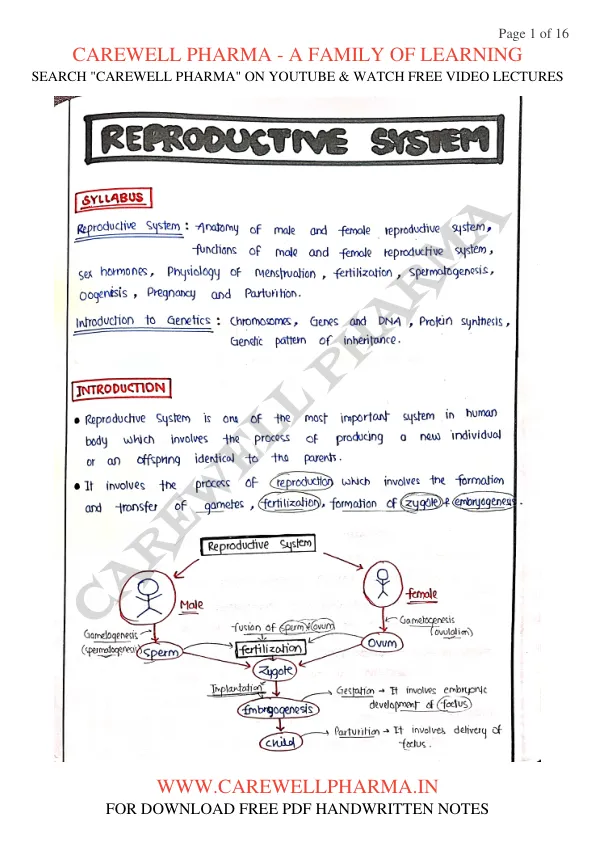 Page 1 of 16
CAREWELL PHARMA - A FAMILY OF LEARNING
SEARCH "CAREWELL PHARMA" ON YOUTUBE & WATCH FREE VIDEO LECTURES
REPRODUCTIVE SYSTEM
SYLLABUS
Reproductive System : Anatomy of male and female reproductive system,
functions of male and female reproductive system,
sex hormones, Physiology of Menstruation, fertilization, Spermatogenesis,
Oogenesis, Pregnancy and Parturition.
Introduction to Genetics : Chromosomes, Genes and DNA, Protein synthesis,
Genetic pattern of inheritance.
INTRODUCTION
• Reproductive System is one of the most important system in human
body which involves the process of producing a new individual
or an offspring identical to the parents.
• It involves the process of reproduction which involves the formation
and transfer of gametes, fertilization, formation of zygote & embryogenesis.
Reproductive System
Male
female
Gametogenesis
(spermatogenesis)
Sperm
fusion of sperm & ovum
fertilization
Gametogenesis
(ovulation)
Ovum
Zygote
Implantation
Embryogenesis
Gestation → It involves embryonic
development of foetus
child
Parturition → It involves delivery of
foetus.
CAREWELL PHARMA
WWW.CAREWELLPHARMA.IN
FOR DOWNLOAD FREE PDF HANDWRITTEN NOTES